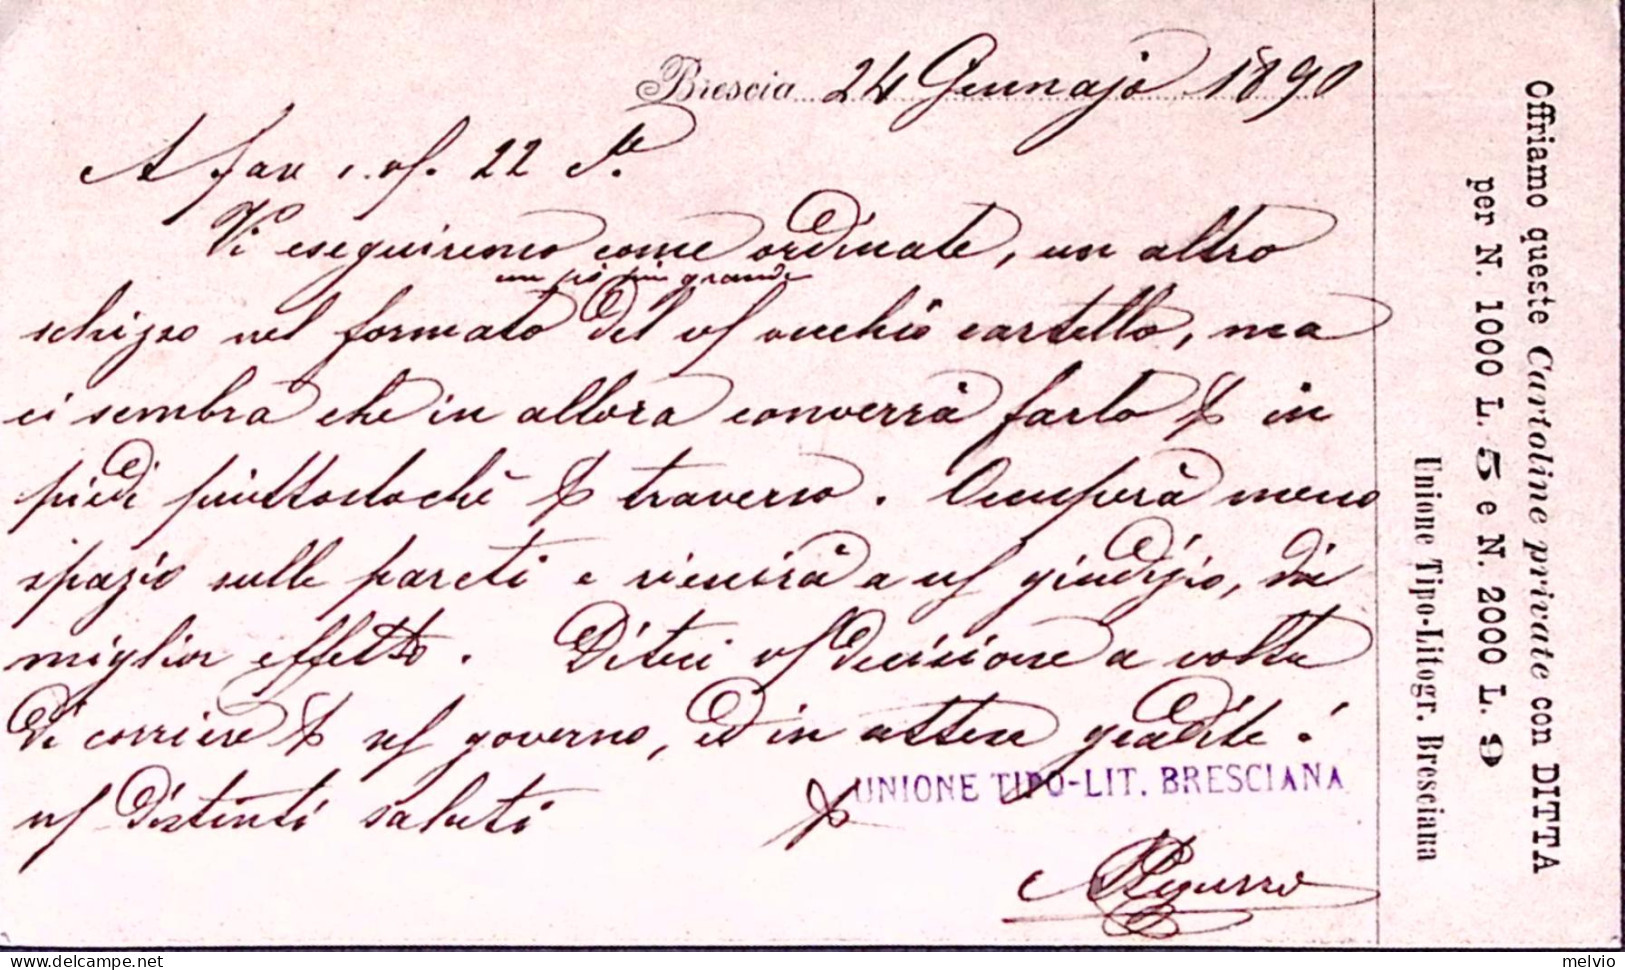 Brescia 24 Gennajo 1890
A fav. vs. 22 C.te
Vi eseguiremo come ordinate, un altro
un pò più grande
schizzo nel formato del vs vecchio cartello, ma
ci sembra che in allora converrà farlo in
piedi piuttostochè traverso. Occuperà meno
spazio sulle pareti e riuscirà a ns giudizio, di
miglior effetto. Diteci vs decisione a volta
di corriere ns governo, ed in attesa
ns distinti saluti
UNIONE TIPO-LIT. BRESCIANA
Offriamo queste Cartoline private con DITTA
per N. 1000 L. 5 e N. 2000 L. 9
Unione Tipo-Litogr. Bresciana
melvio